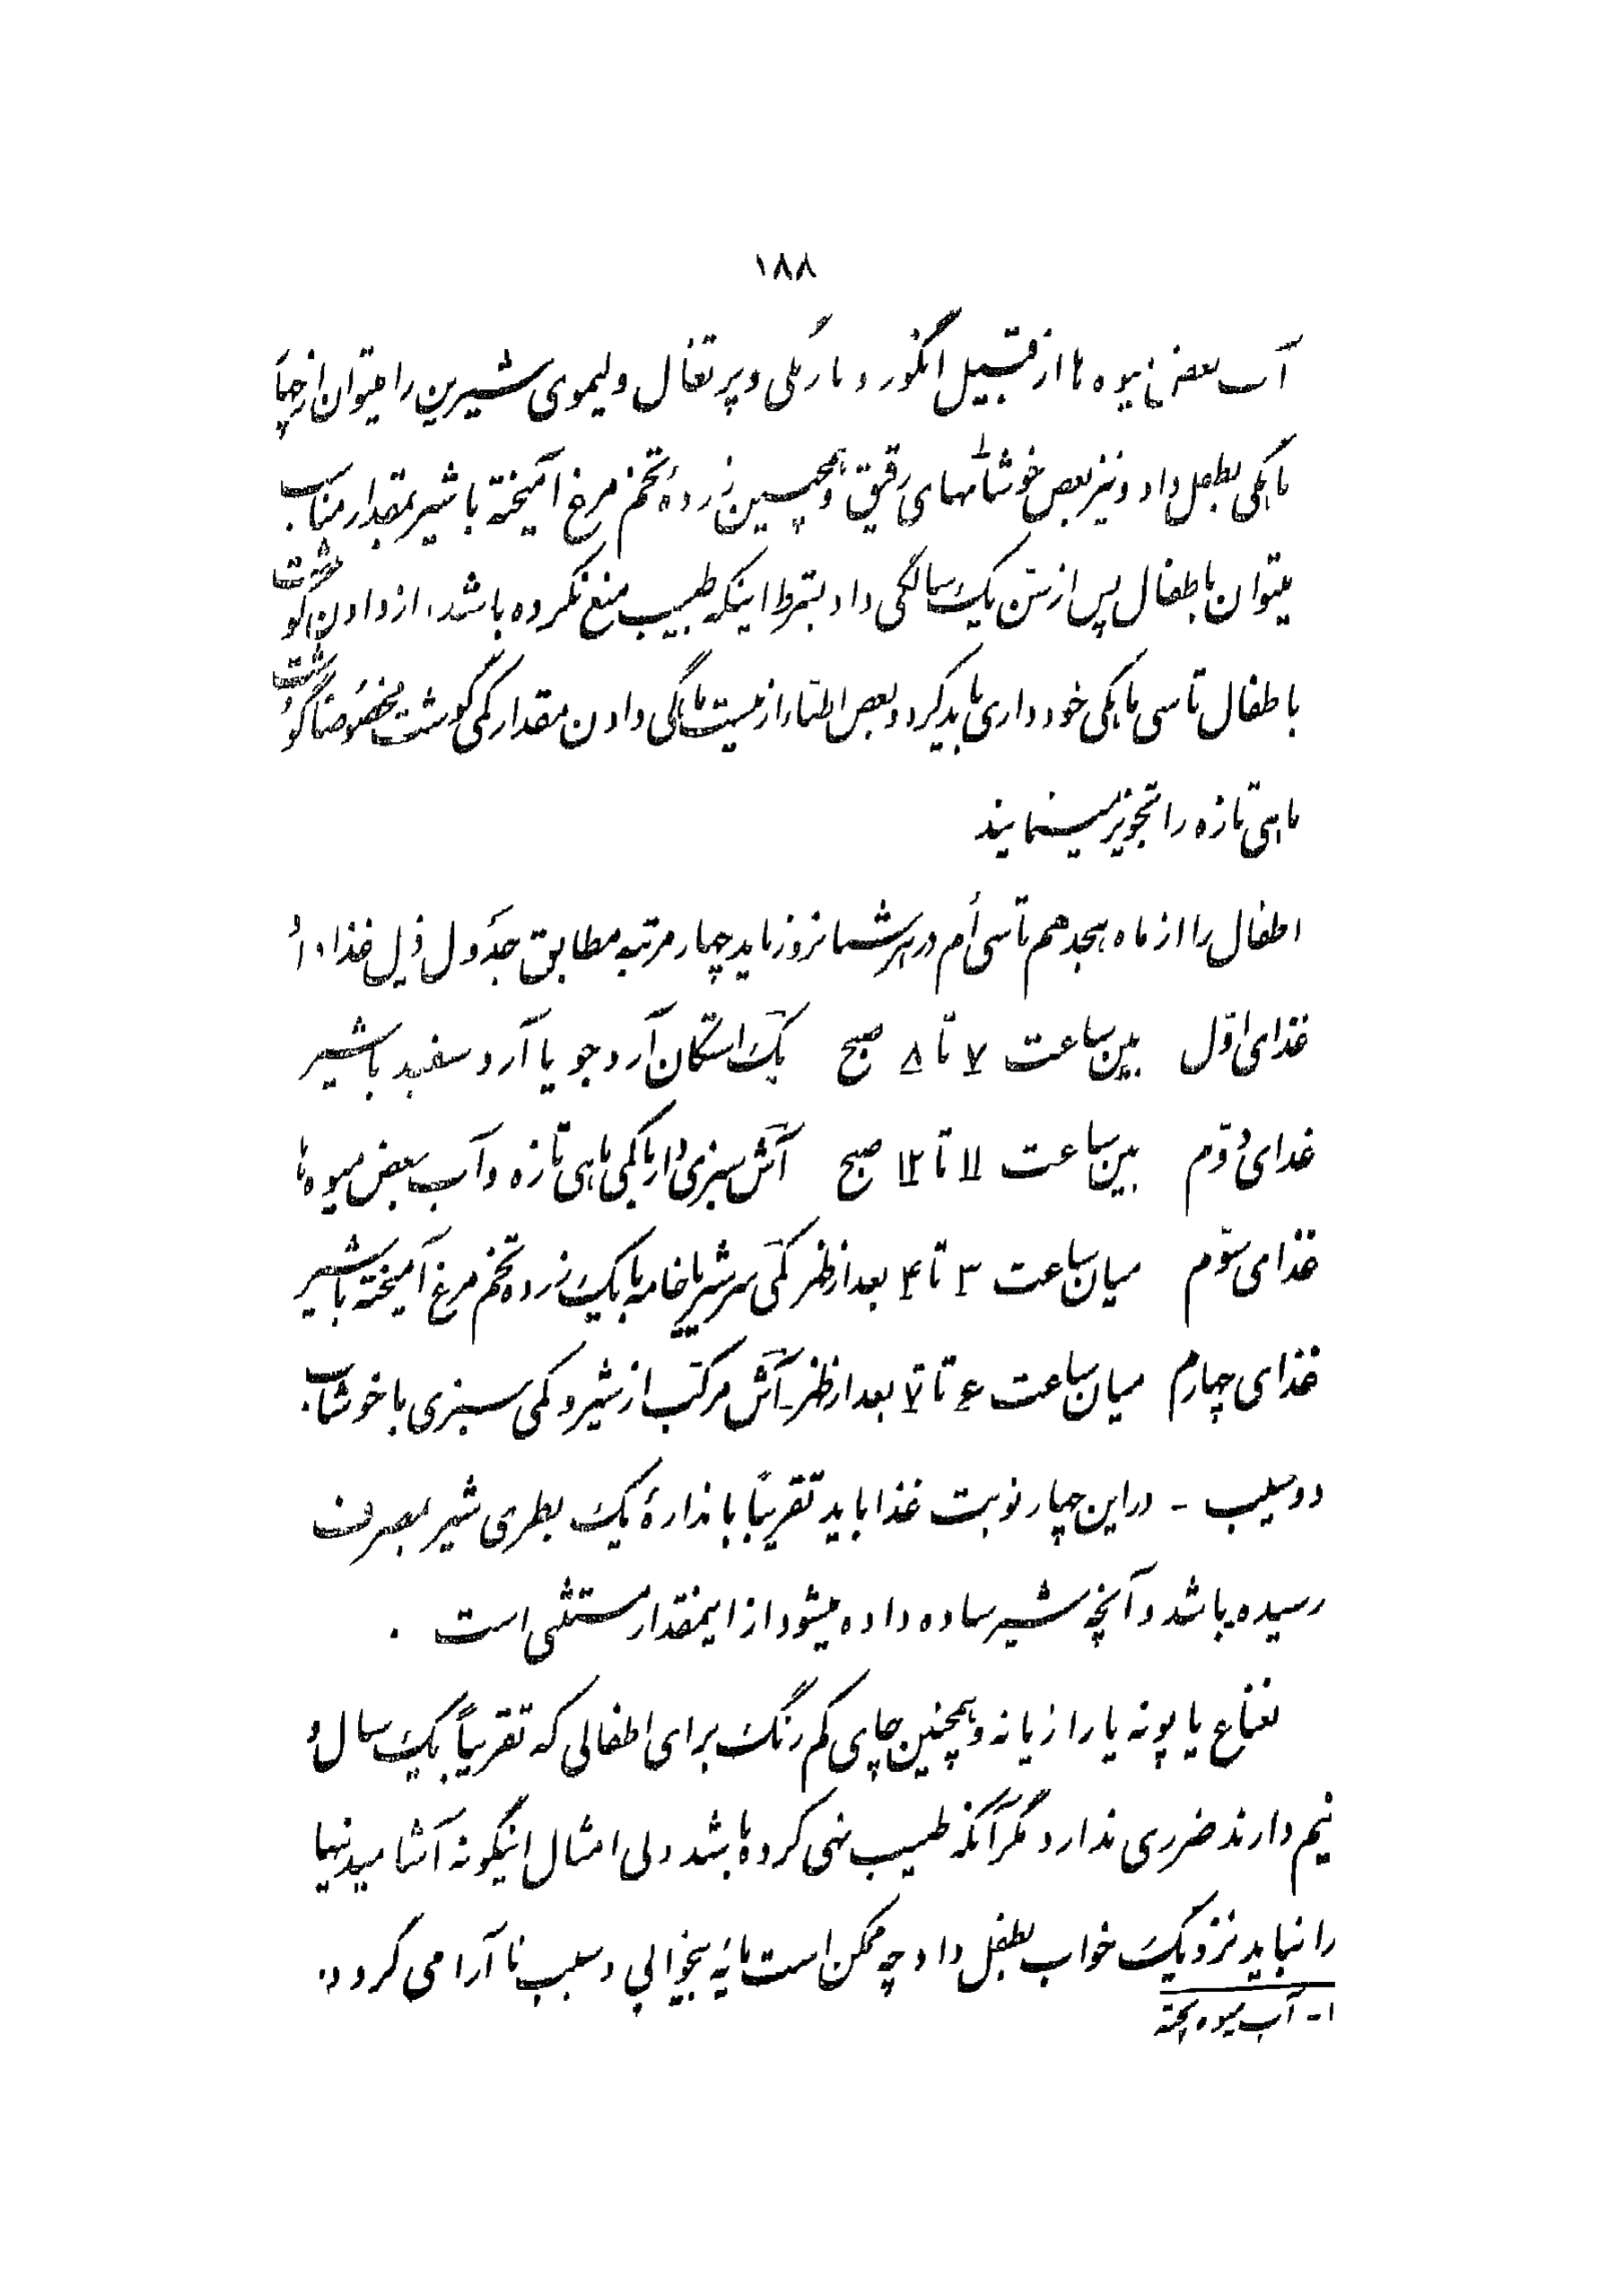 ۱۸۸
آب بعضی میوه ها از قبیل انگور و نارنگی و پرتقال و لیموی شیرین را میتوان از چهار
ماهگی بطفل داد و نیز بعض خوشابهای(۱) رقیق و همچنین زردهٔ تخم مرغ آمیخته با شیر بمقدار مناسب
میتوان باطفال پس از سن یک سالگی داد بشرط اینکه طبیب منع نکرده باشد، از دادن گوشت
باطفال تا سی ماهگی خودداری باید کرد و بعض اطباء از بیست ماهگی دادن مقدار کمی گوشت مخصوصاً گوشت
ماهی تازه را تجویز مینمایند
اطفال را از ماه هیجدهم تا سی اُم در هر شبانروز باید چهار مرتبه مطابق جدول ذیل غذا داد
غذای اوّل بین ساعت ۷ تا ۸ صبح یک استکان آرد جو یا آرد سفید با شیر
غذای دوّم بین ساعت ۱۱ تا ۱۲ صبح آش سبزی دار با کمی ماهی تازه و آب بعض میوه ها
غذای سوّم میان ساعت ۳ تا ۴ بعد از ظهر کمی سرشیر یا خامه با یک زرده تخم مرغ آمیخته با شیر
غذای چهارم میان ساعت ۶ تا ۷ بعد از ظهر ـ آش مرکب از شیر و کمی سبزی با خوشاب
دو سیب - در این چهار نوبت غذا باید تقریباً باندازهٔ یک بطری شیر بمصرف
رسیده باشد و آنچه شیر ساده داده میشود از اینمقدار مستثنی است .
نعناع یا پونه یا رازیانه و همچنین چای کم رنگ برای اطفالی که تقریباً یک سال و
نیم دارند ضرری ندارد مگر آنکه طبیب نهی کرده باشد ولی امثال اینگونه آشامیدنیها
را نباید نزدیک خواب بطفل داد چه ممکن است مایهٔ بیخوابی و سبب ناآرامی گردد.
۱- آب میوه پخته